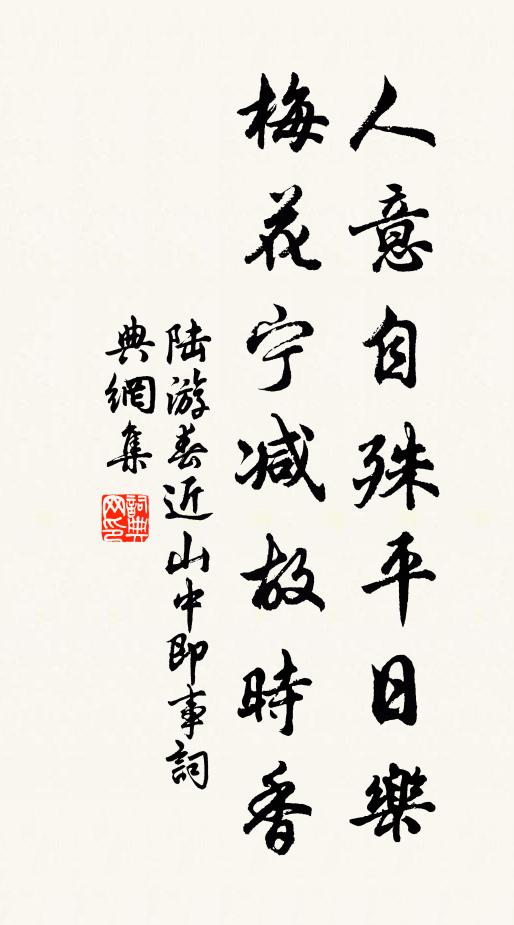 人意自殊平日樂
梅花宁减故時香
陆游春近山中即事詞
典網集
詞典网印